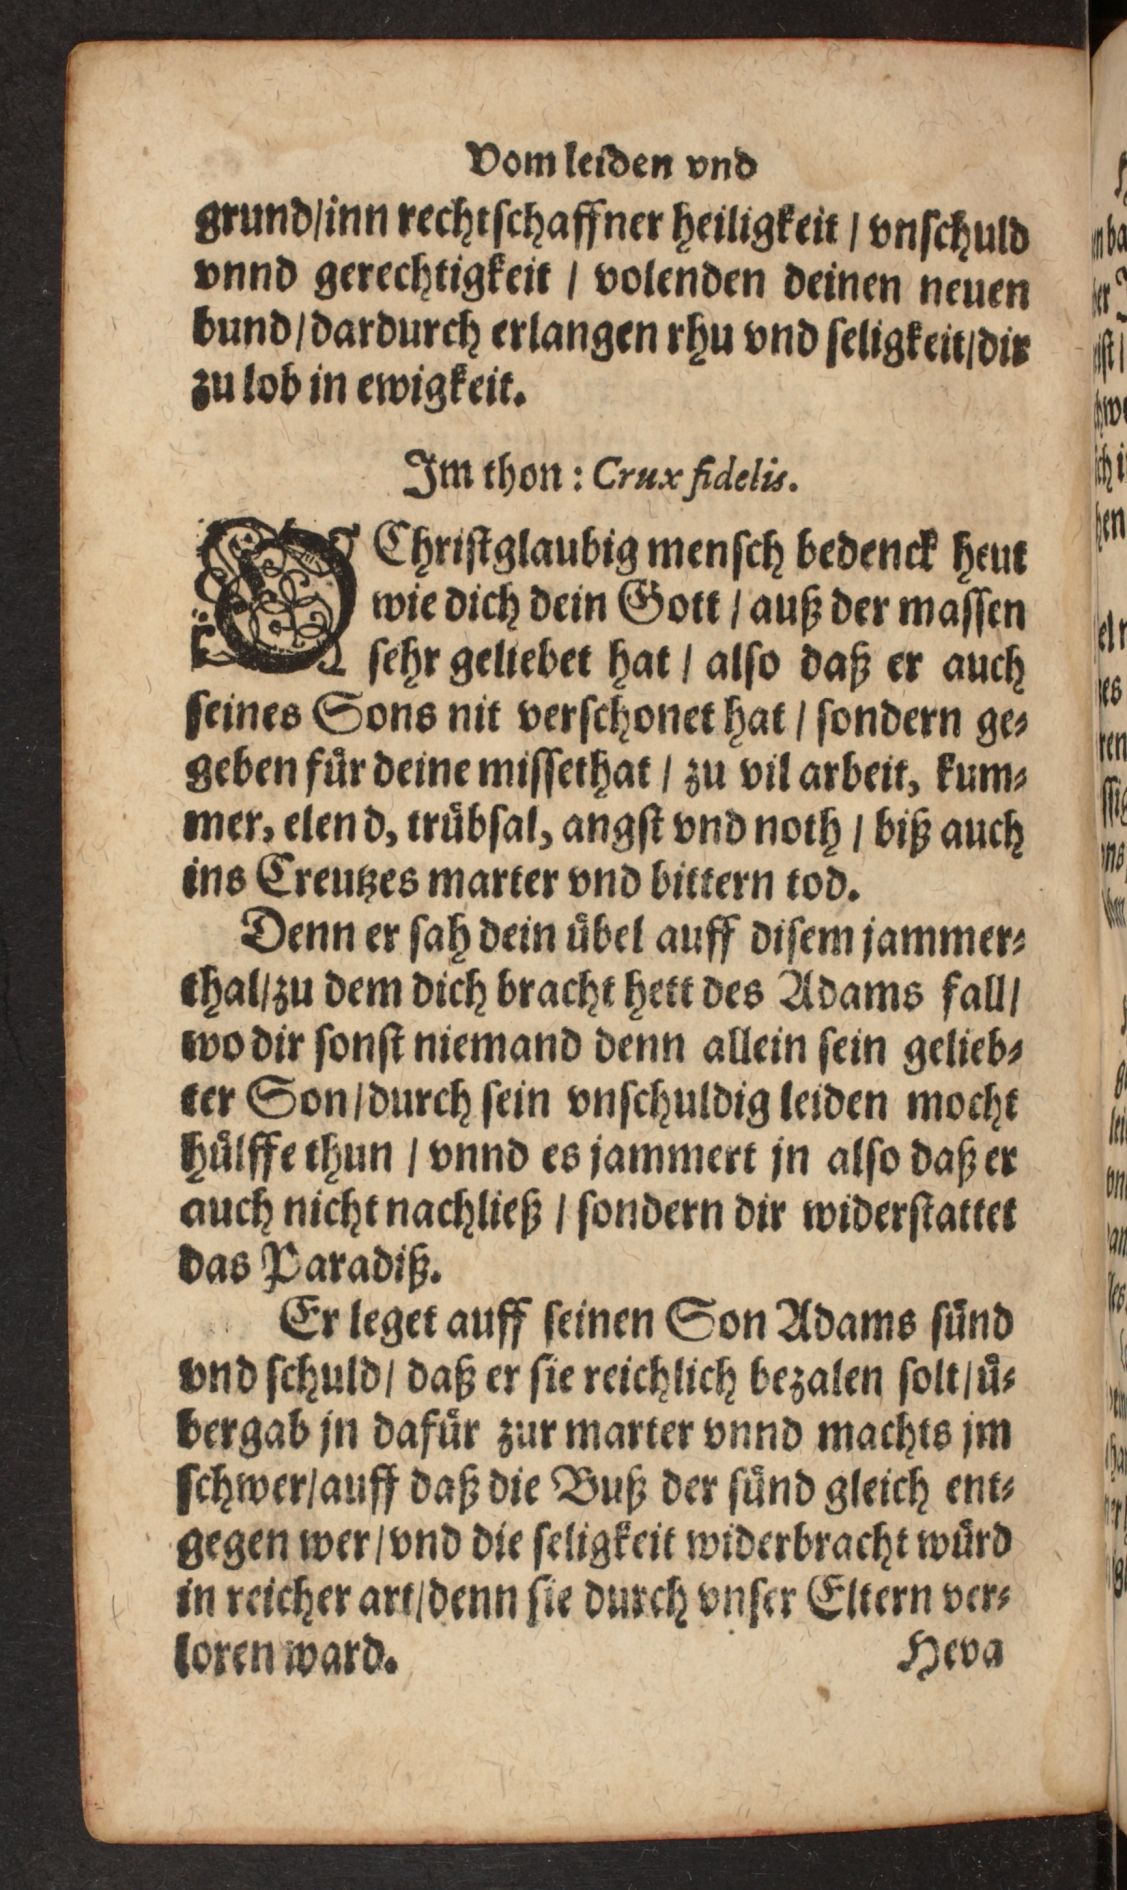 Vom leiden vnd
grund/inn rechtschaffner heiligkeit / vnschuld
vnnd gerechtigkeit / volenden deinen neuen
bund/dardurch erlangen rhu vnd seligkeit/dir
zu lob in ewigkeit.
Im thon: Crux fidelis.
O Christglaubig mensch bedenck heut
wie dich dein Gott / auß der massen
sehr geliebet hat / also daß er auch
seines Sons nit verschonet hat / sondern ge-
geben fuͤr deine missethat / zu vil arbeit, kum-
mer, elend, truͤbsal, angst vnd noth / biß auch
ins Creutzes marter vnd bittern tod.
Denn er sah dein uͤbel auff disem jammer-
thal/zu dem dich bracht hett des Adams fall/
wo dir sonst niemand denn allein sein gelieb-
ter Son/durch sein vnschuldig leiden mocht
huͤlffe thun / vnnd es jammert jn also daß er
auch nicht nachließ / sondern dir widerstattet
das Paradiß.
Er leget auff seinen Son Adams suͤnd
vnd schuld/ daß er sie reichlich bezalen solt/uͤ-
bergab jn dafuͤr zur marter vnnd machts jm
schwer/auff daß die Buß der suͤnd gleich ent-
gegen wer/vnd die seligkeit widerbracht wuͤrd
in reicher art/denn sie durch vnser Eltern ver-
loren ward. Heva